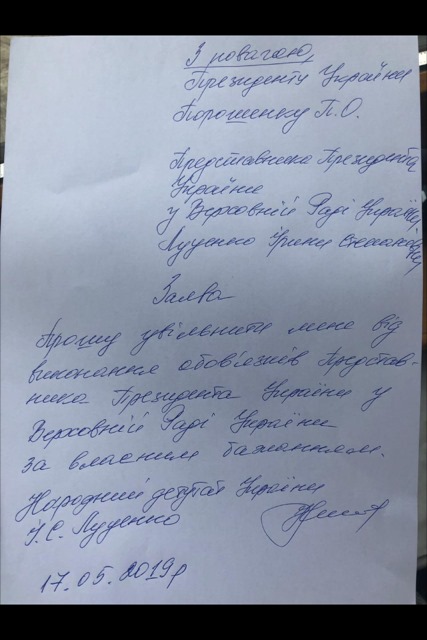 З повагою,
Президенту України
Порошенку П.О.
Представника Президента
України
у Верховній Раді України
Луценко Ірини Степанівни
Заява
Прошу увільнити мене від
виконання обов'язків Представ-
ника Президента України у
Верховній Раді України
за власним бажанням.
Народний депутат України
І.С. Луценко
17.05.2019р